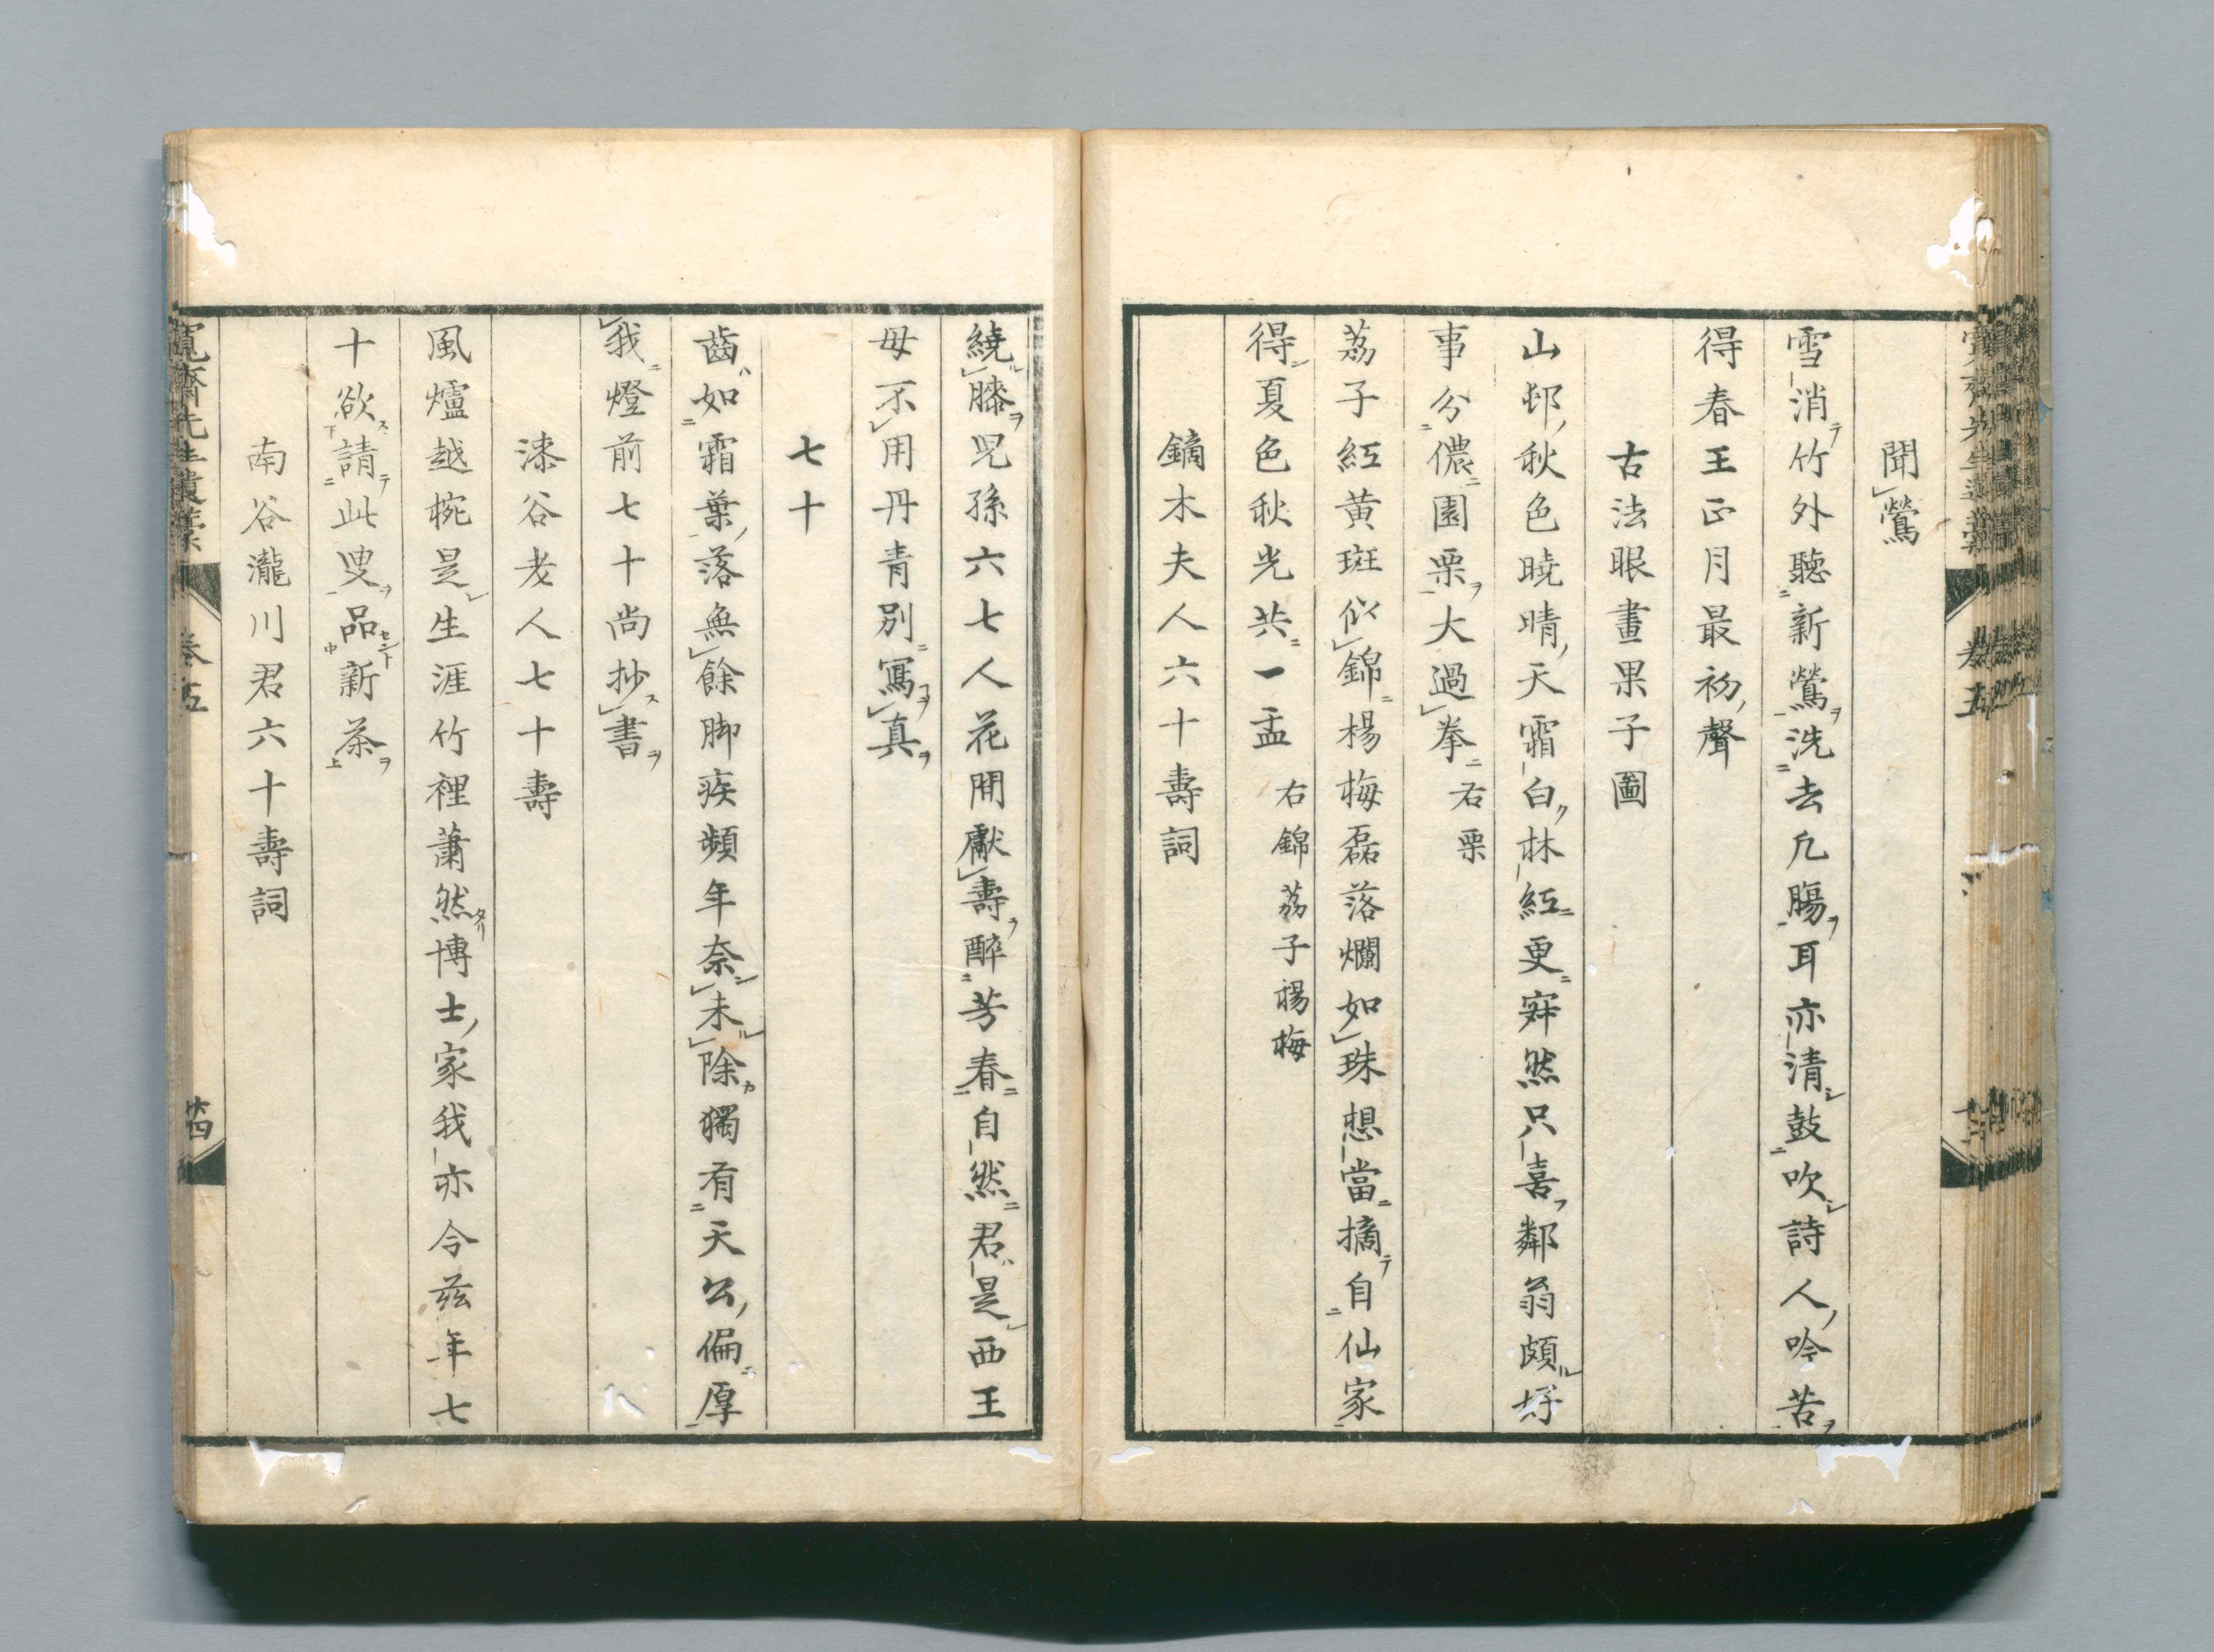 聞鶯
雪消竹外聽新鶯洗去凡腸耳亦清鼓吹詩人吟苦
得春王正月最初聲
古法眼畫果子圖
山邨秋色曉晴天霜白林紅更寂然只喜鄰翁頗好
事分儂園栗大過拳 右栗
荔子紅黄斑似錦楊梅磊落爛如珠想當摘自仙家
得夏色秋光共一盂 右錦荔子楊梅
鏑木夫人六十壽詞
繞膝兒孫六七人花開獻壽醉芳春自然君是西王
母不用丹青別寫真
七十
齒如霜葉落無餘脚疾頻年奈未除獨有天公偏厚
我燈前七十尚抄書
漆谷老人七十壽
風爐越椀是生涯竹裡蕭然博士家我亦今茲年七
十欲請此叟品新茶
南谷瀧川君六十壽詞
寬齋先生遺稾 卷五 十四